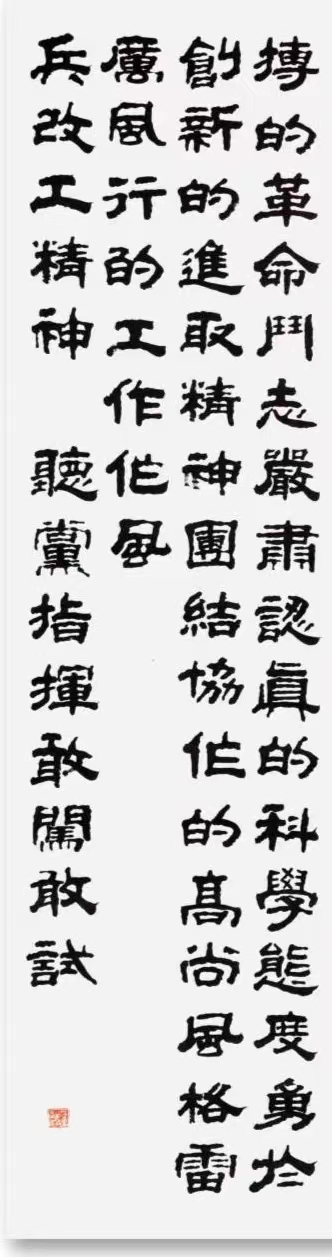 搏的革命鬥志嚴肅認真的科學態度勇於
創新的進取精神團結協作的高尚風格雷
厲風行的工作作風
兵改工精神 聽黨指揮敢闖敢試